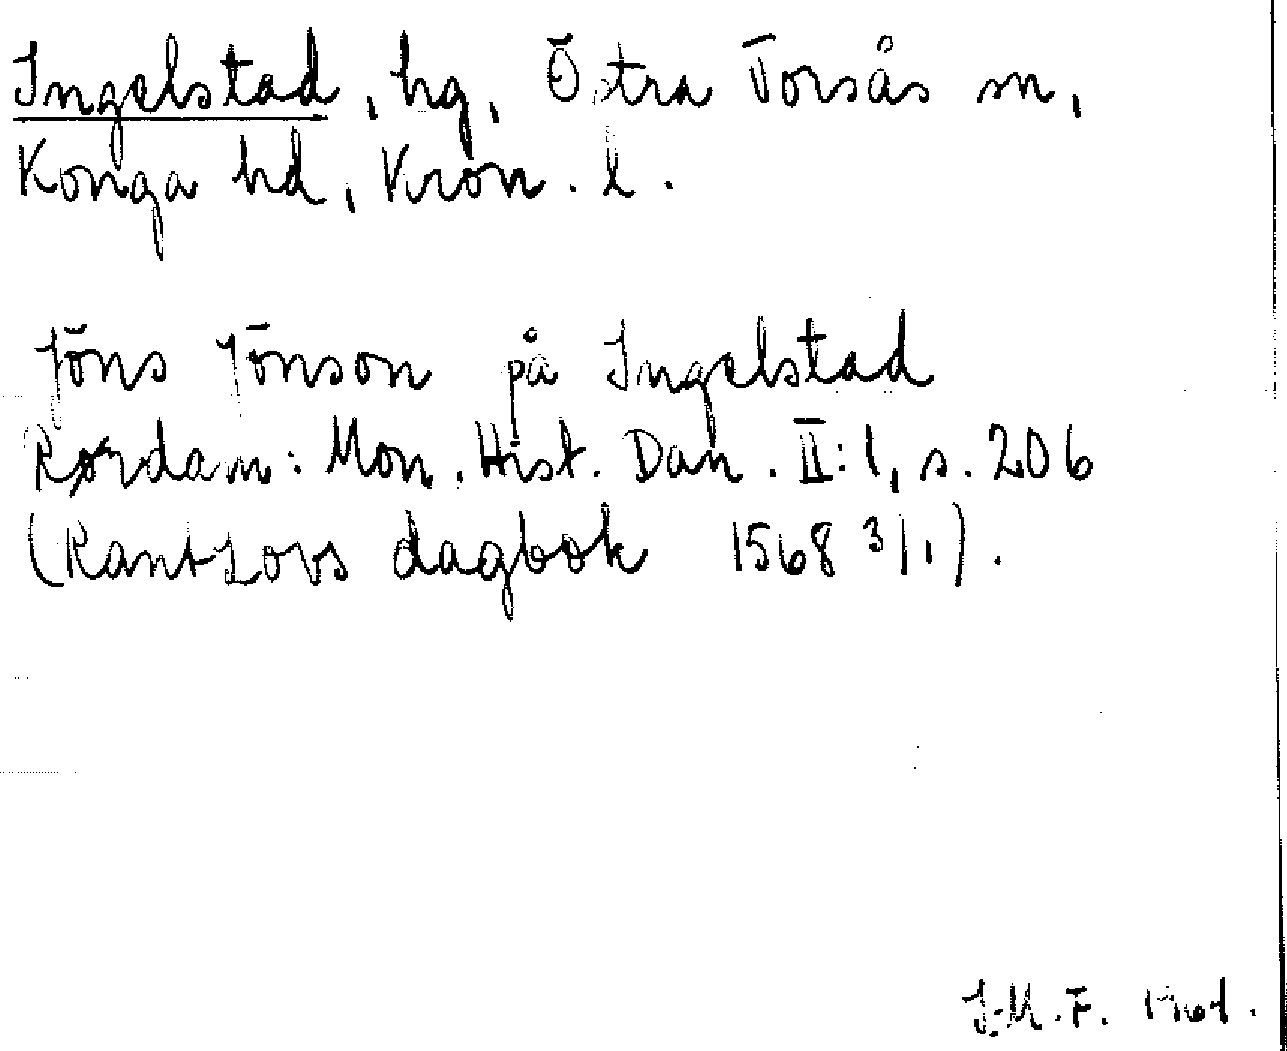 Ingelstad, hg, Östra Torsås sn,
Konga hd, Kron. l.
Jöns Jönson på Ingelstad
Rørdam: Mon. Hist. Dan. II:1, s. 206
(Rantzovs dagbok 1568 3/1).
J.M.F. 1961.